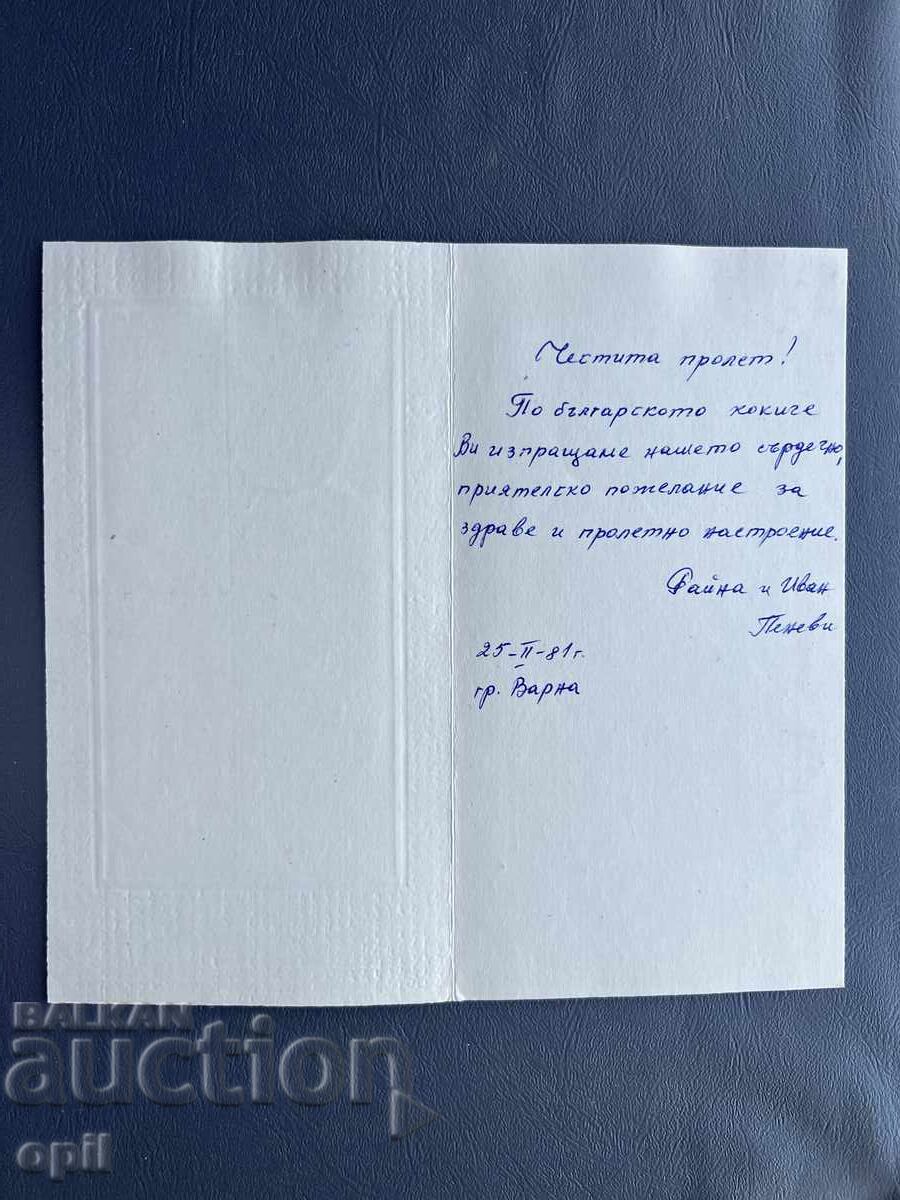 Честита пролет!
По българското кокиче
Ви изпращаме нашето сърдечно,
приятелско пожелание за
здраве и пролетно настроение.
Райна и Иван
Пеневи
25-II-81г.
гр. Варна
BALKAN
auction
opil